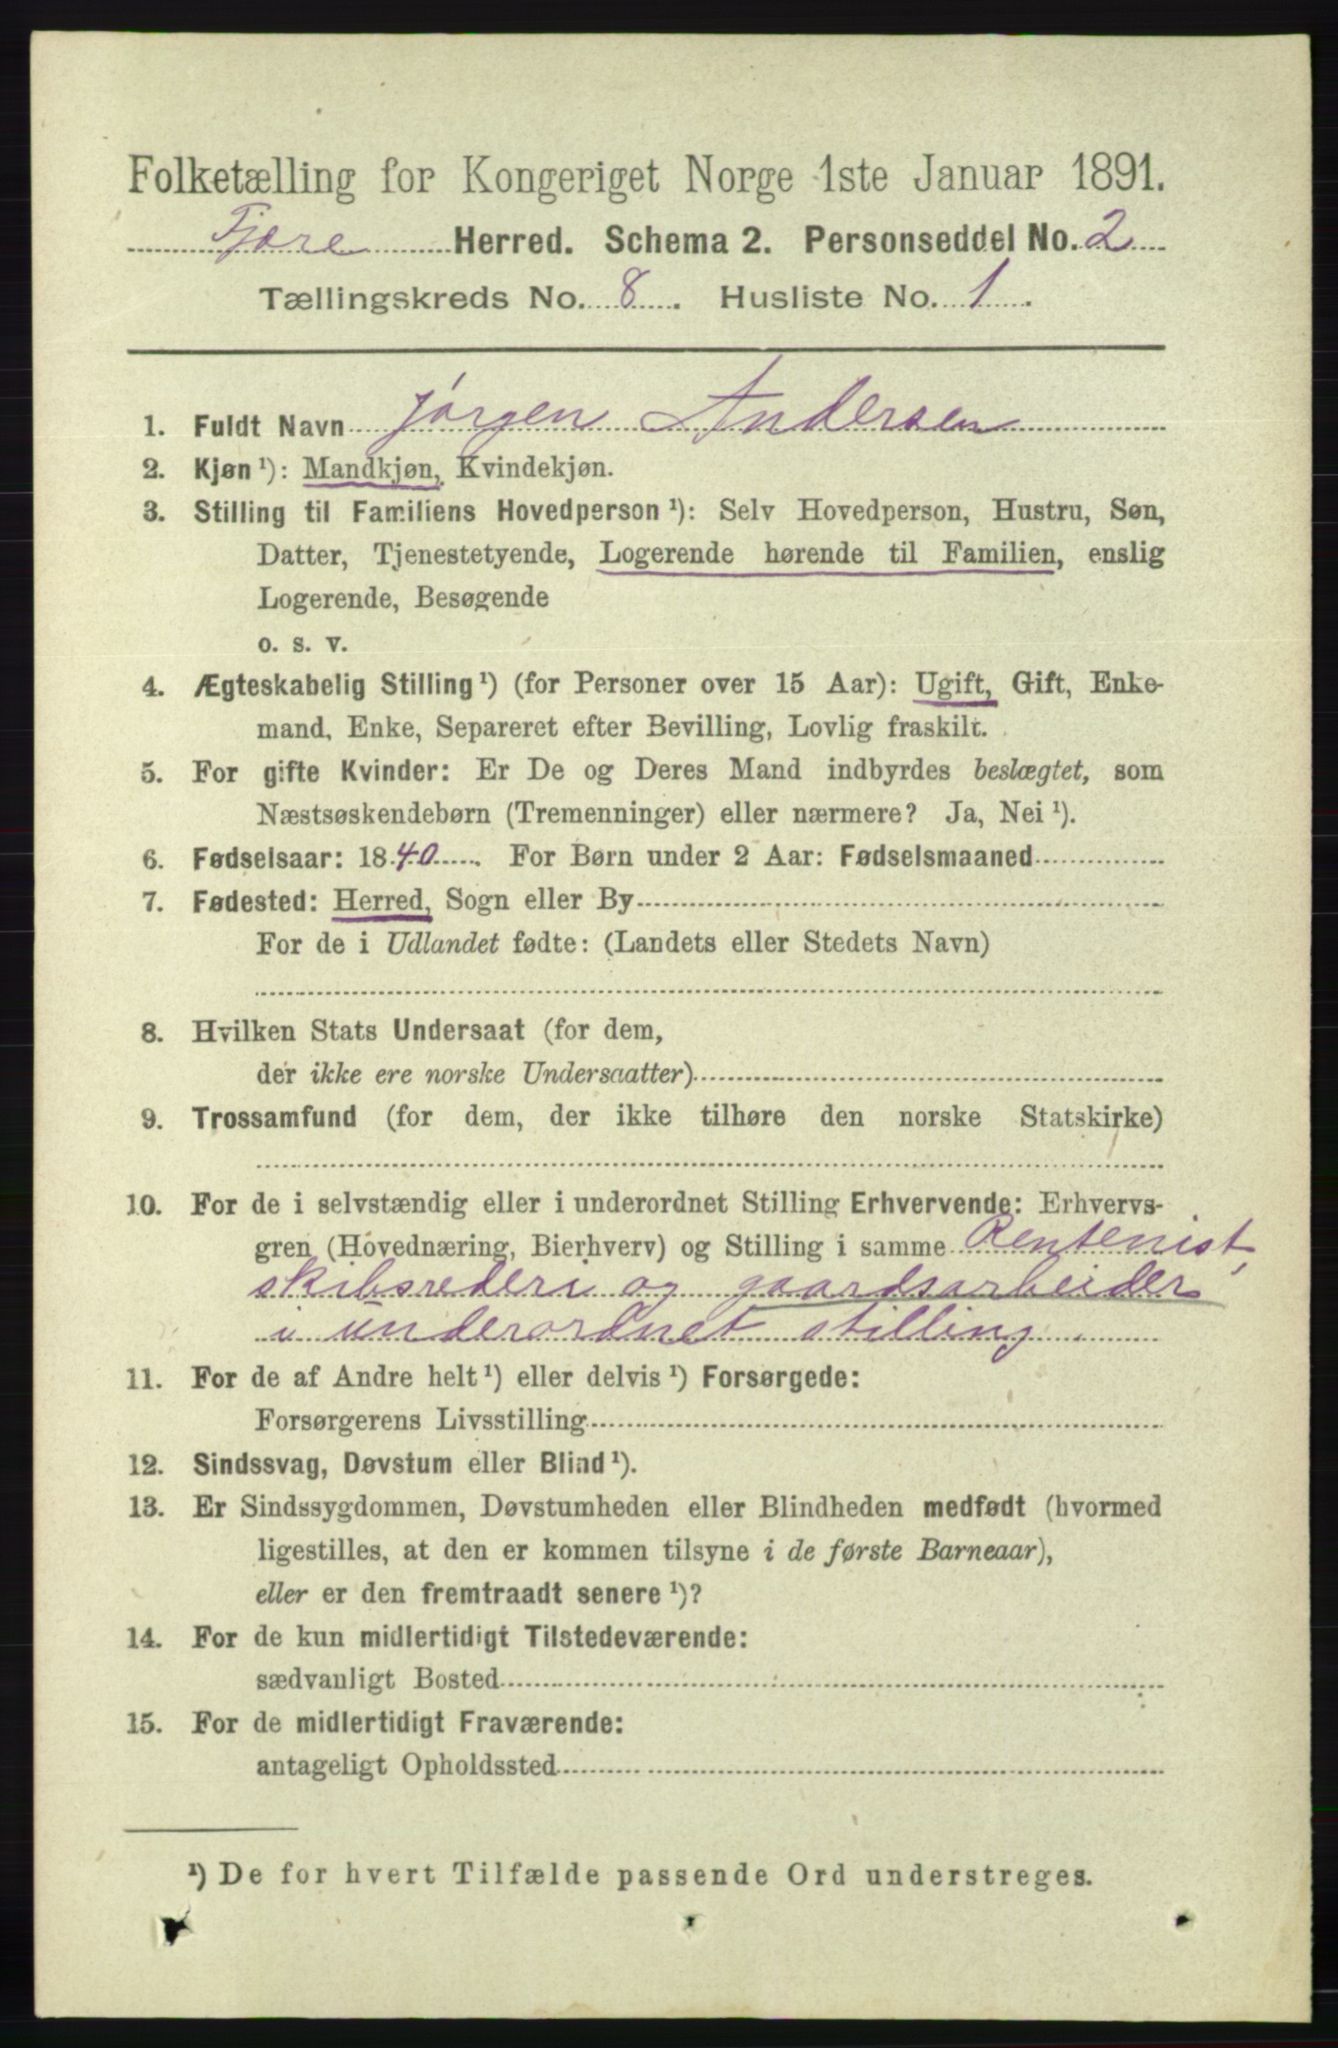 Folketælling for Kongeriget Norge 1ste Januar 1891.
Fjære Herred. Schema 2. Personseddel No. 2
Tællingskreds No. 8. Husliste No. 1.
1. Fuldt Navn Jørgen Andersen
2. Kjøn ¹): Mandkjøn, Kvindekjøn.
3. Stilling til Familiens Hovedperson ¹): Selv Hovedperson, Hustru, Søn,
Datter, Tjenestetyende, Logerende hørende til Familien, enslig
Logerende, Besøgende
o. s. v.
4. Ægteskabelig Stilling ¹) (for Personer over 15 Aar): Ugift, Gift, Enke-
mand, Enke, Separeret efter Bevilling, Lovlig fraskilt.
5. For gifte Kvinder: Er De og Deres Mand indbyrdes beslægtet, som
Næstsøskendebørn (Tremenninger) eller nærmere? Ja, Nei ¹).
6. Fødselsaar: 1840. For Børn under 2 Aar: Fødselsmaaned
7. Fødested: Herred, Sogn eller By
For de i Udlandet fødte: (Landets eller Stedets Navn)
8. Hvilken Stats Undersaat (for dem,
der ikke ere norske Undersaatter)
9. Trossamfund (for dem, der ikke tilhøre den norske Statskirke)
10. For de i selvstændig eller i underordnet Stilling Erhvervende: Erhvervs-
gren (Hovednæring, Bierhverv) og Stilling i samme Rentenist,
skibsrederi og gaardsarbeider
i underordnet stilling.
11. For de af Andre helt ¹) eller delvis ¹) Forsørgede:
Forsørgerens Livsstilling
12. Sindssvag, Døvstum eller Blind ¹).
13. Er Sindssygdommen, Døvstumheden eller Blindheden medfødt (hvormed
ligestilles, at den er kommen tilsyne i de første Barneaar),
eller er den fremtraadt senere ¹)?
14. For de kun midlertidigt Tilstedeværende:
sædvanligt Bosted
15. For de midlertidigt Fraværende:
antageligt Opholdssted
¹) De for hvert Tilfælde passende Ord understreges.